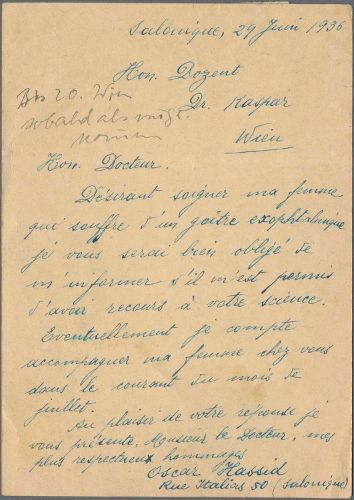 Salonique, 29 Juin 1936
Hon. Dozent
Dr. Kaspar
Wien
Bis 20. Wien
sobald als mögl.
kommen
Hon. Docteur.
Désirant soigner ma femme
qui souffre d'un goître exophtalmique
je vous serai bien obligé de
m'informer s'il m'est permis
d'avoir recours à votre science.
Eventuellement je compte
accompagner ma femme chez vous
dans le courant du mois de
juillet.
Au plaisir de votre réponse je
vous présente, Monsieur le Docteur, mes
plus respectueux hommages
Oscar Hassid
Rue Italias 50 (Salonique)